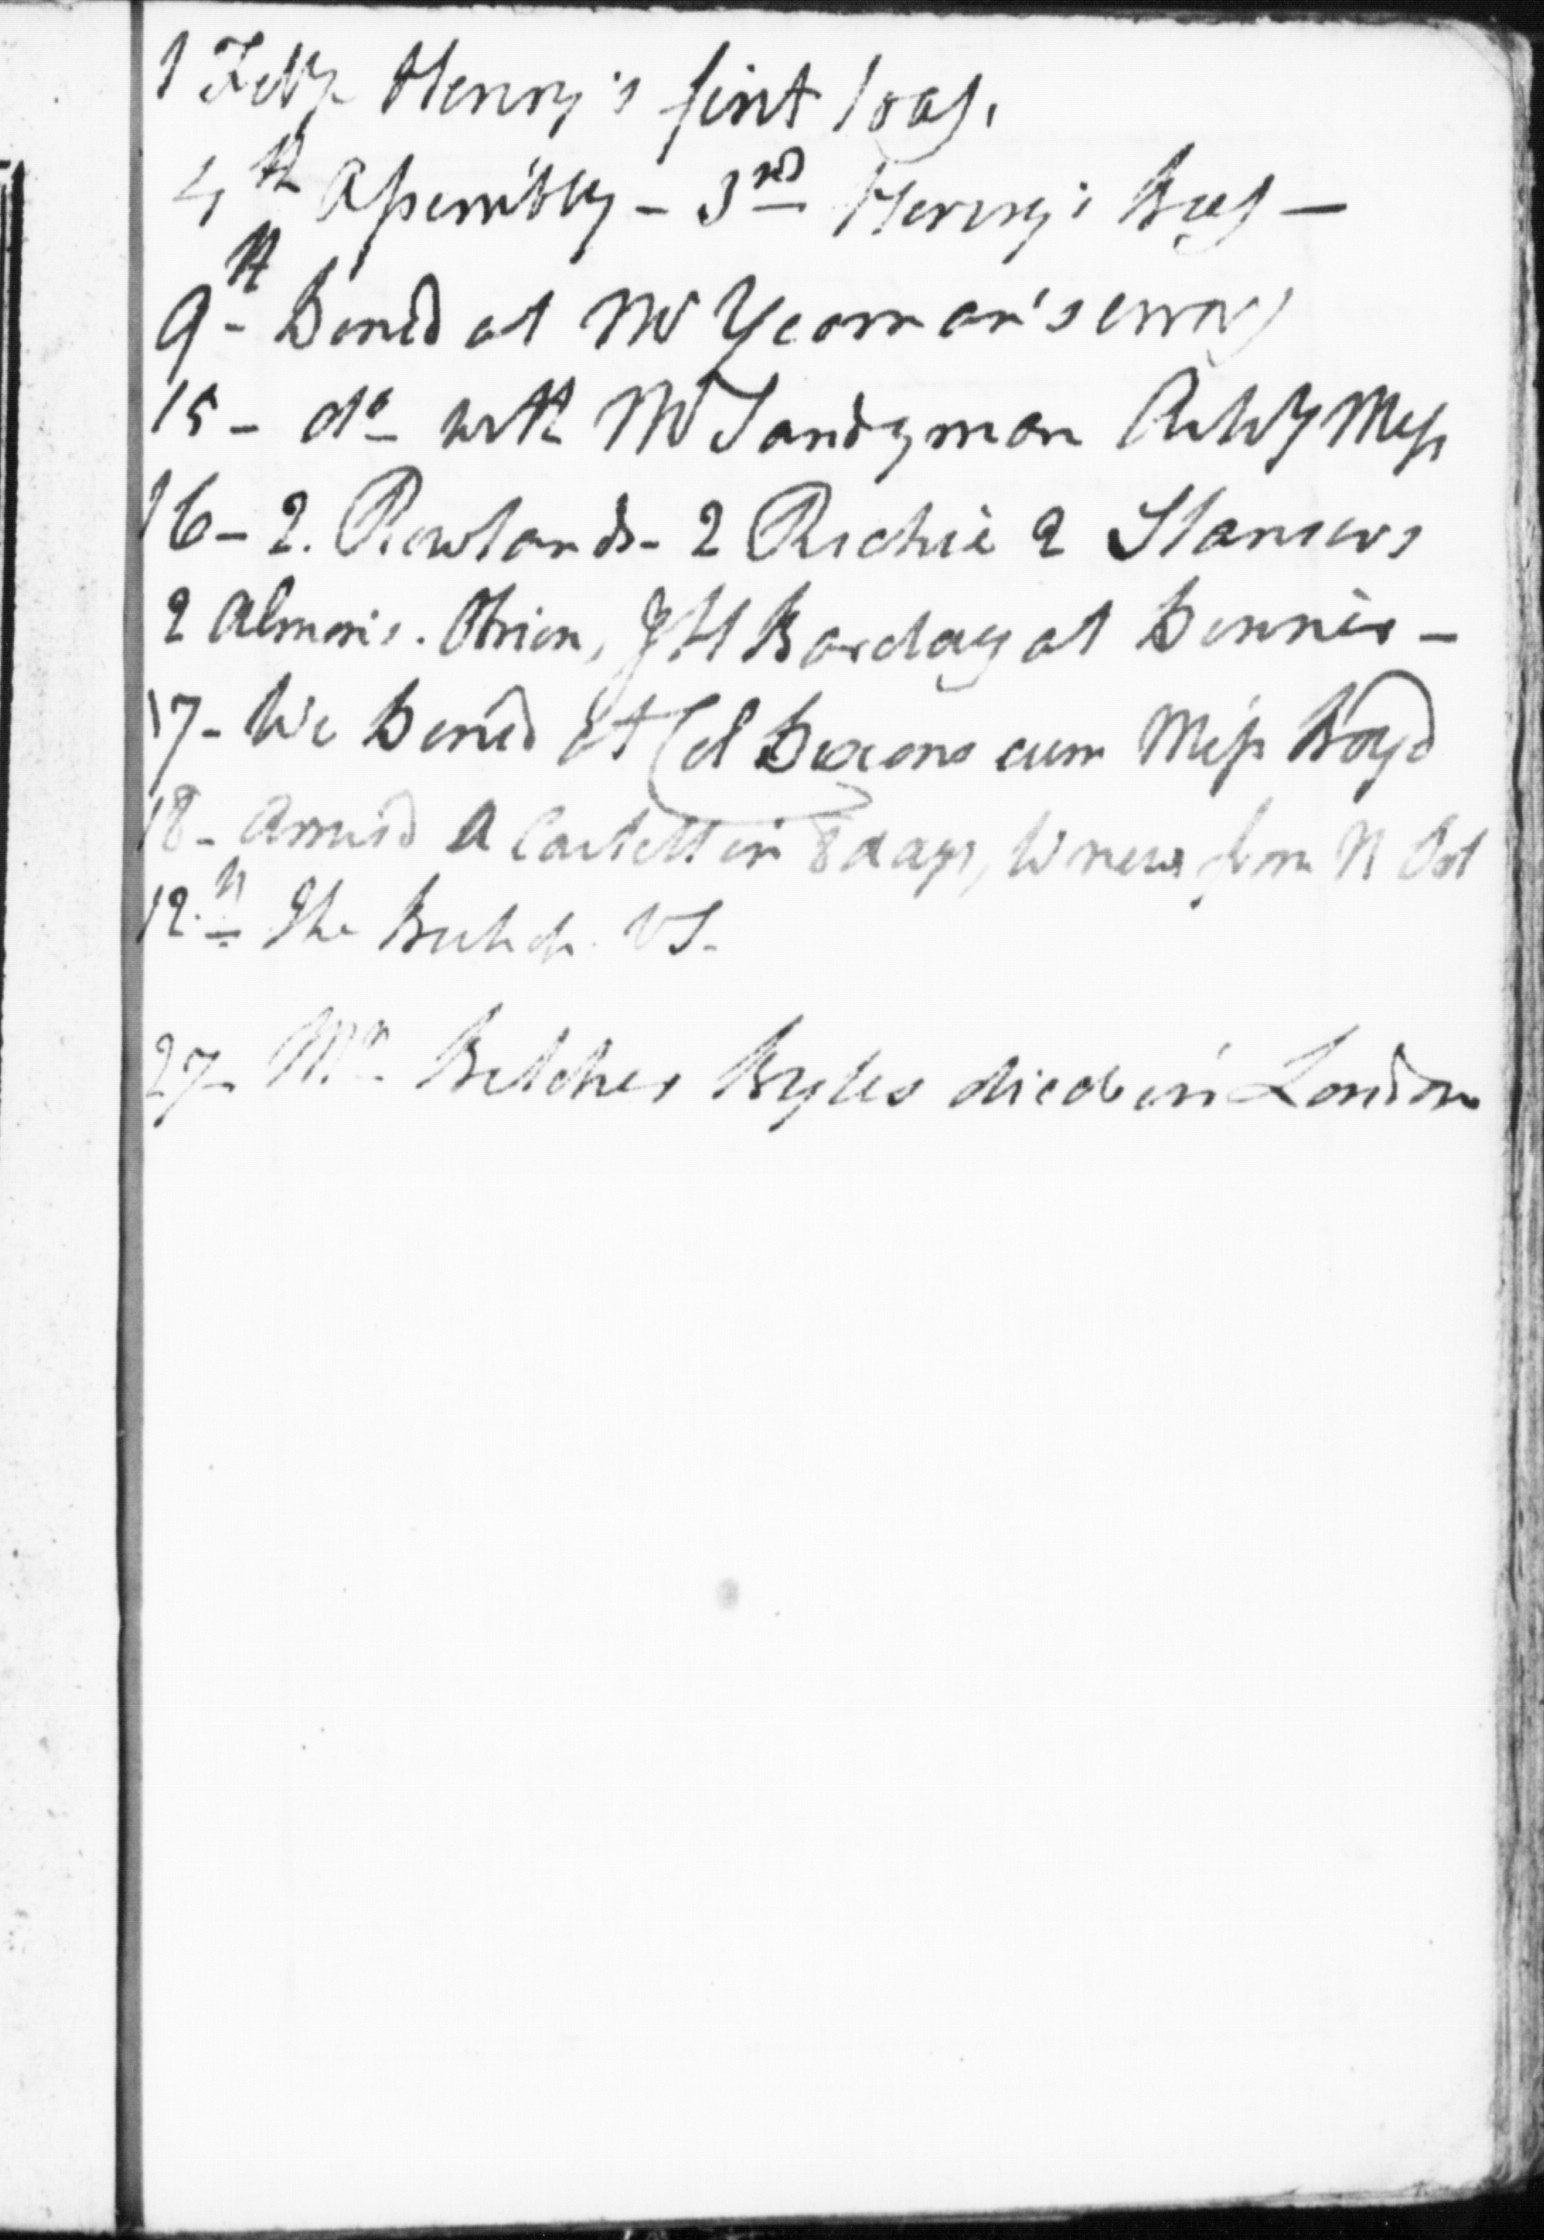 1 Feby Henry's first loaf.
4th Assembly - 3rd Henry's Beef -
9th Dined at Mr Yeoman's
15 - do with Mr Sandyman Arty Mess
16 - 2. Rowlands - 2 Richie 2 Stansers
2 Almons. Obrien, J H Barclay at Dinner -
17 - We Dined at Col Dixons cum Miss Boyd
18 - Arrived A Cartell in 8 days, from N
12th The
27 - Mr Belcher Byles died in London